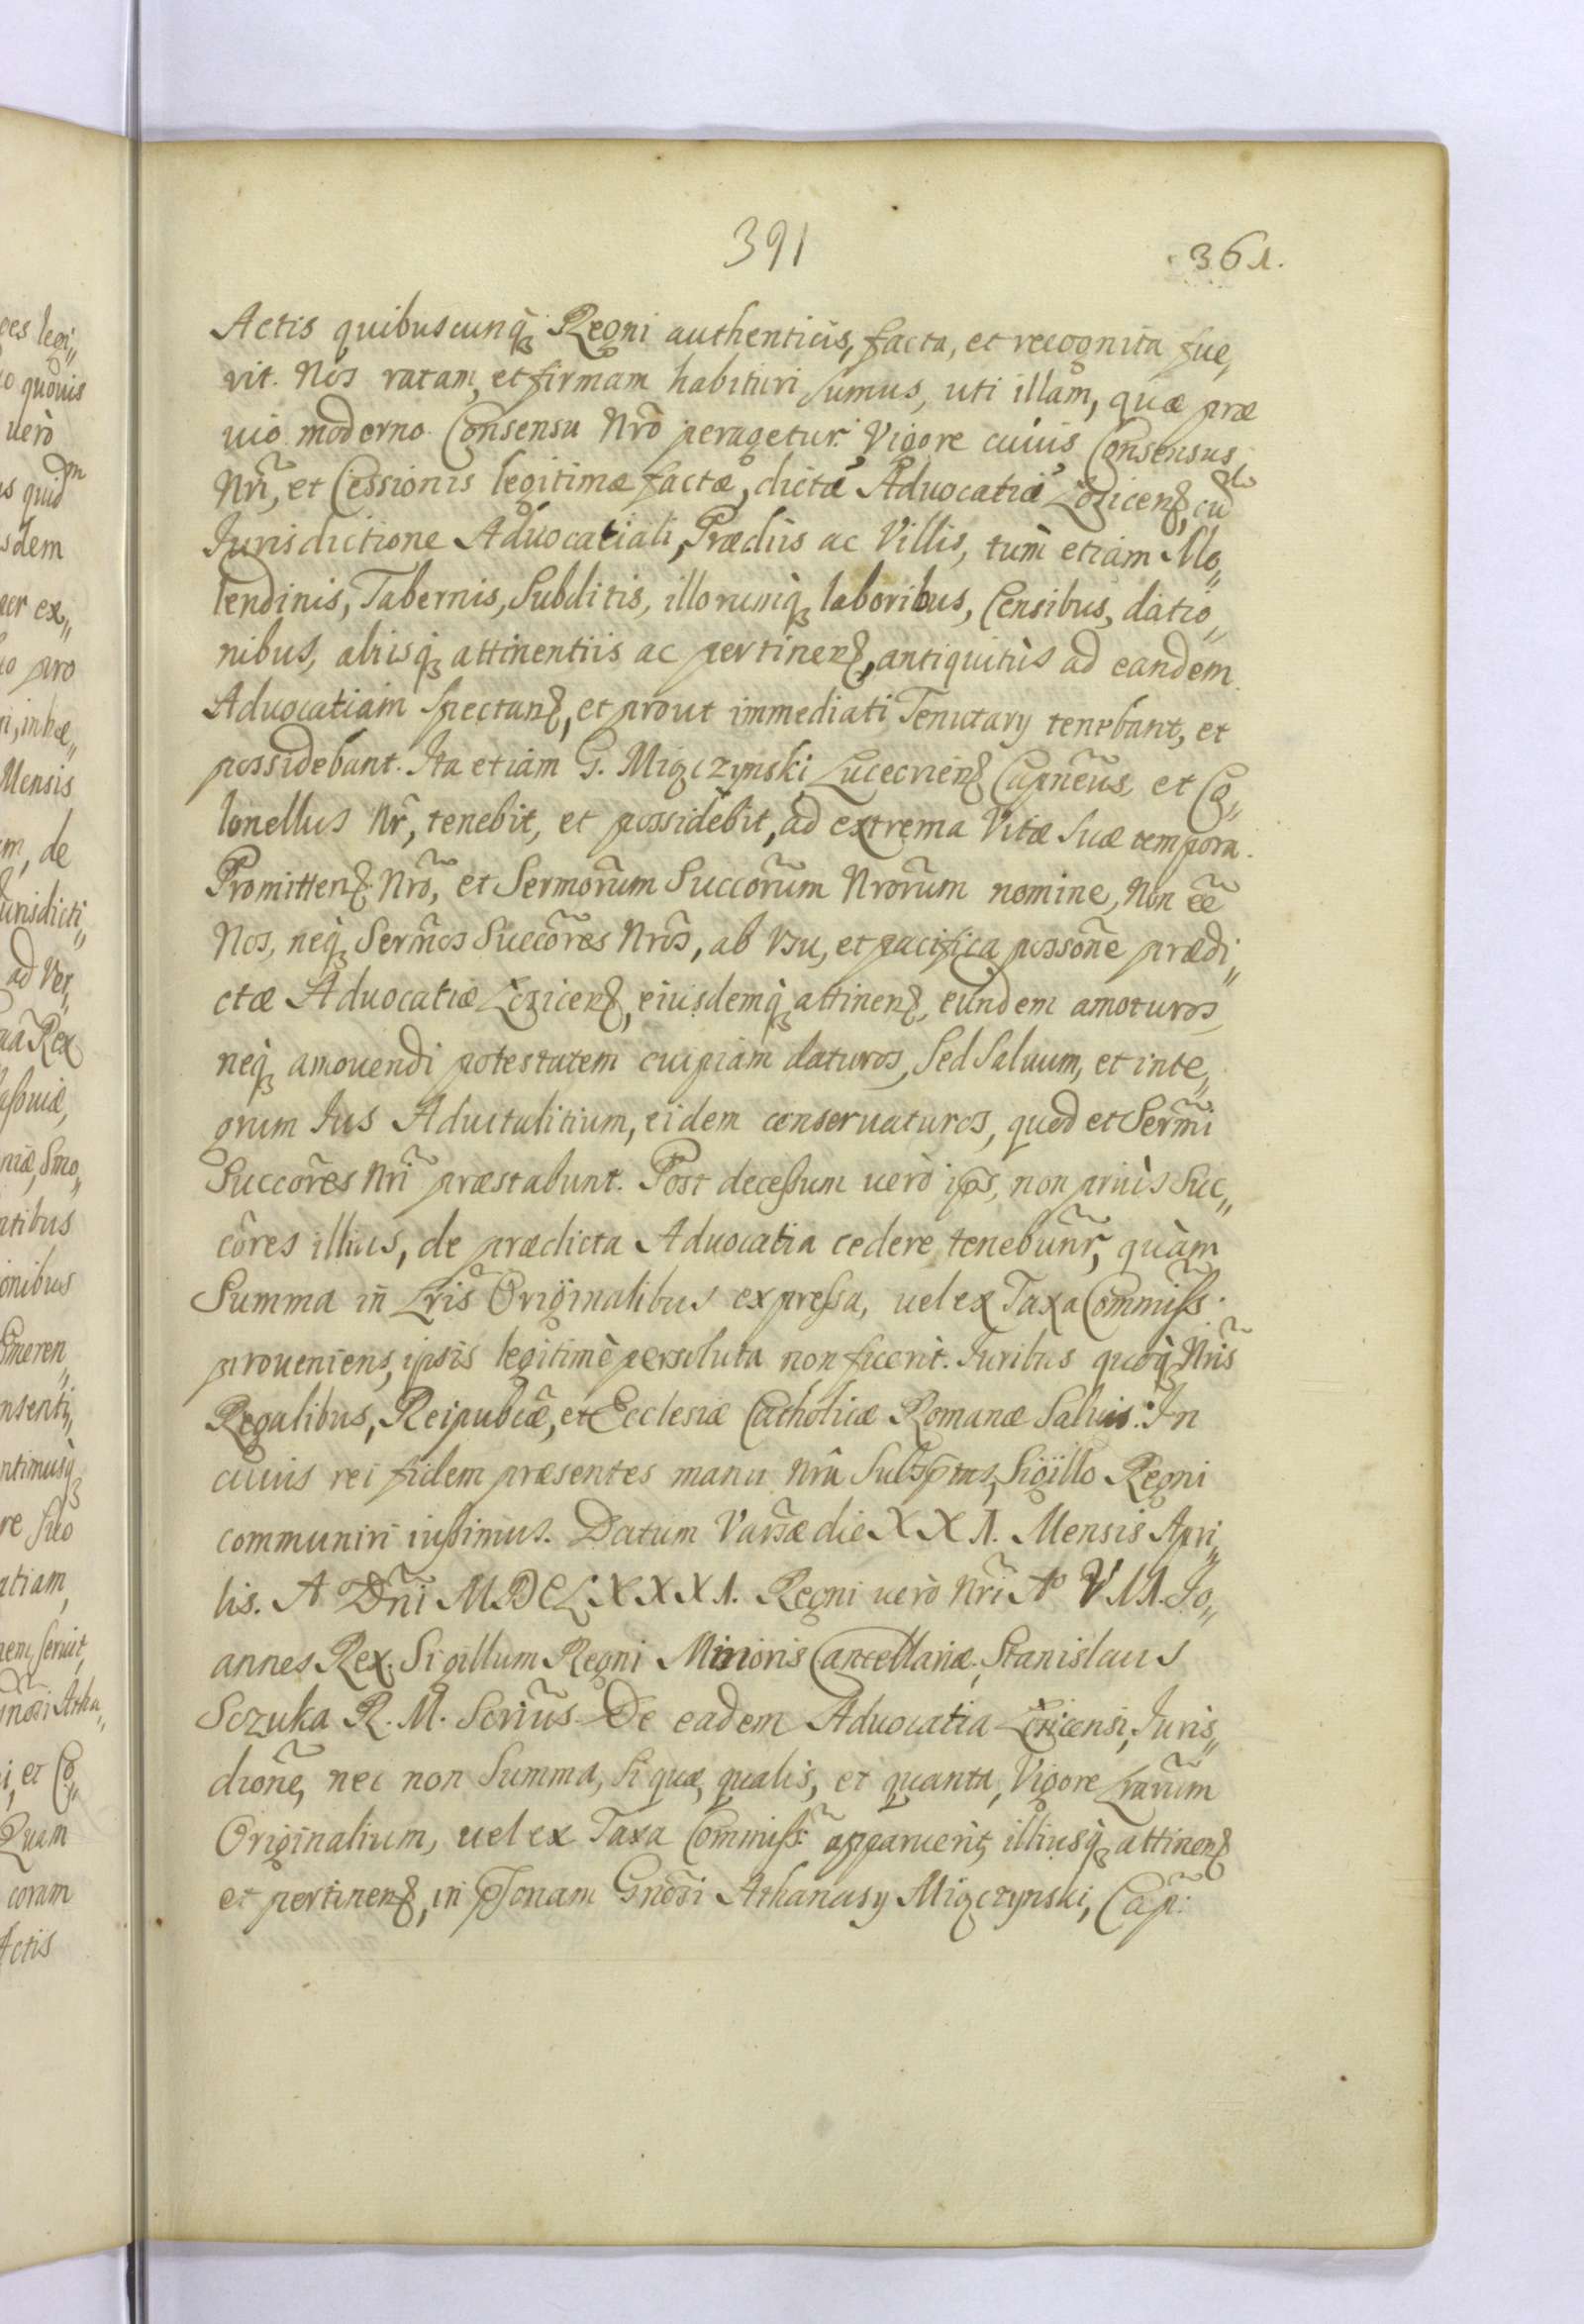 391
361.
Actis quibuscunq₃ Regni authenticis, facta, et recognita fue„
rit. Nos ratam, et firmam habituri sumus, uti illam, quæ præ
uio moderno Consensu Nrõ peragetur. Vigore cuius Consensus
Nrĩ, et Cessionis legitimæ factæ, dictæ Aduocatiæ Łoziceñ, cũ
Jurisdictione Aduocatiali, Prædiis ac Villis, tùm etiam Mo„
lendinis, Tabernis, Subditis, illorumq₃ laboribus, Censibus, datio„
nibus, aliisq₃ attinentiis ac pertineñ, antiquitùs ad eandem
Aduocatiam spectañ, et prout immediati Tenutarÿ tenebant, et
possidebant. Ita etiam G. Miączynski Luceorieñ Capnẽus, et Co„
lonellus Nr̃, tenebit, et possidebit, ad extrema Vitæ suæ tempora.
Promitteñ Nrõ, et Sermorũm Succorũm Nrorũm nomine, Non eẽ
Nos, neq₃ Sermõs Succorẽs Nrõs, ab Vsu, et pacifica possonẽ prædi„
ctæ Aduocatiæ Łoziceñ, eiusdemq₃ attineñ, eundem amoturos,
neq₃ amouendi potestatem cuipiam daturos, Sed Saluum, et inte„
grum Ius Aduitalitium, eidem conseruaturos, quod et Sermĩ
Succorẽs Nrĩ præstabunt. Post decessum uerò ips̃, non priùs Suc„
corẽs illius, de prædicta Aduocatia cedere tenebunr̃, quàm
Summa in Lrĩs Originalibus expressa, uel ex Taxa Commiss̃.
proueniens, ipsis legitimè persoluta non fuerit. Iuribus quoq₃ Nrĩs
Regalibus, Reipublcæ̃, et Ecclesiæ Catholicæ Romanæ Saluis. In
cuius rei fidem præsentes manu nrã Subsptas, Sigillo Regni
communiri iussimus. Datum Varsæ die XXI. Mensis Apri„
lis. A Dnĩ MDCLXXXI. Regni uerò Nrĩ Aº VII. Jo„
annes Rex. Sigillum Regni Minoris Cancellariæ, Stanislaus
Sczuka R. M. Scriũs. De eadem Aduocatia Łozicensi, Juris„
dionẽ, nec non Summa, si quæ, qualis, et quanta, Vigore Lrarũm
Originalium, uel ex Taxa Commiss̃: apparuerit, illiusq₃ attineñ
et pertineñ, in psonam Gnosĩ Athanasÿ Miączynski, Cap̃: